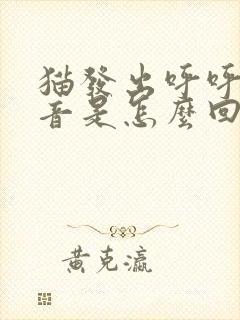 猫發出呼呼
音是怎麼回
黄克瀛